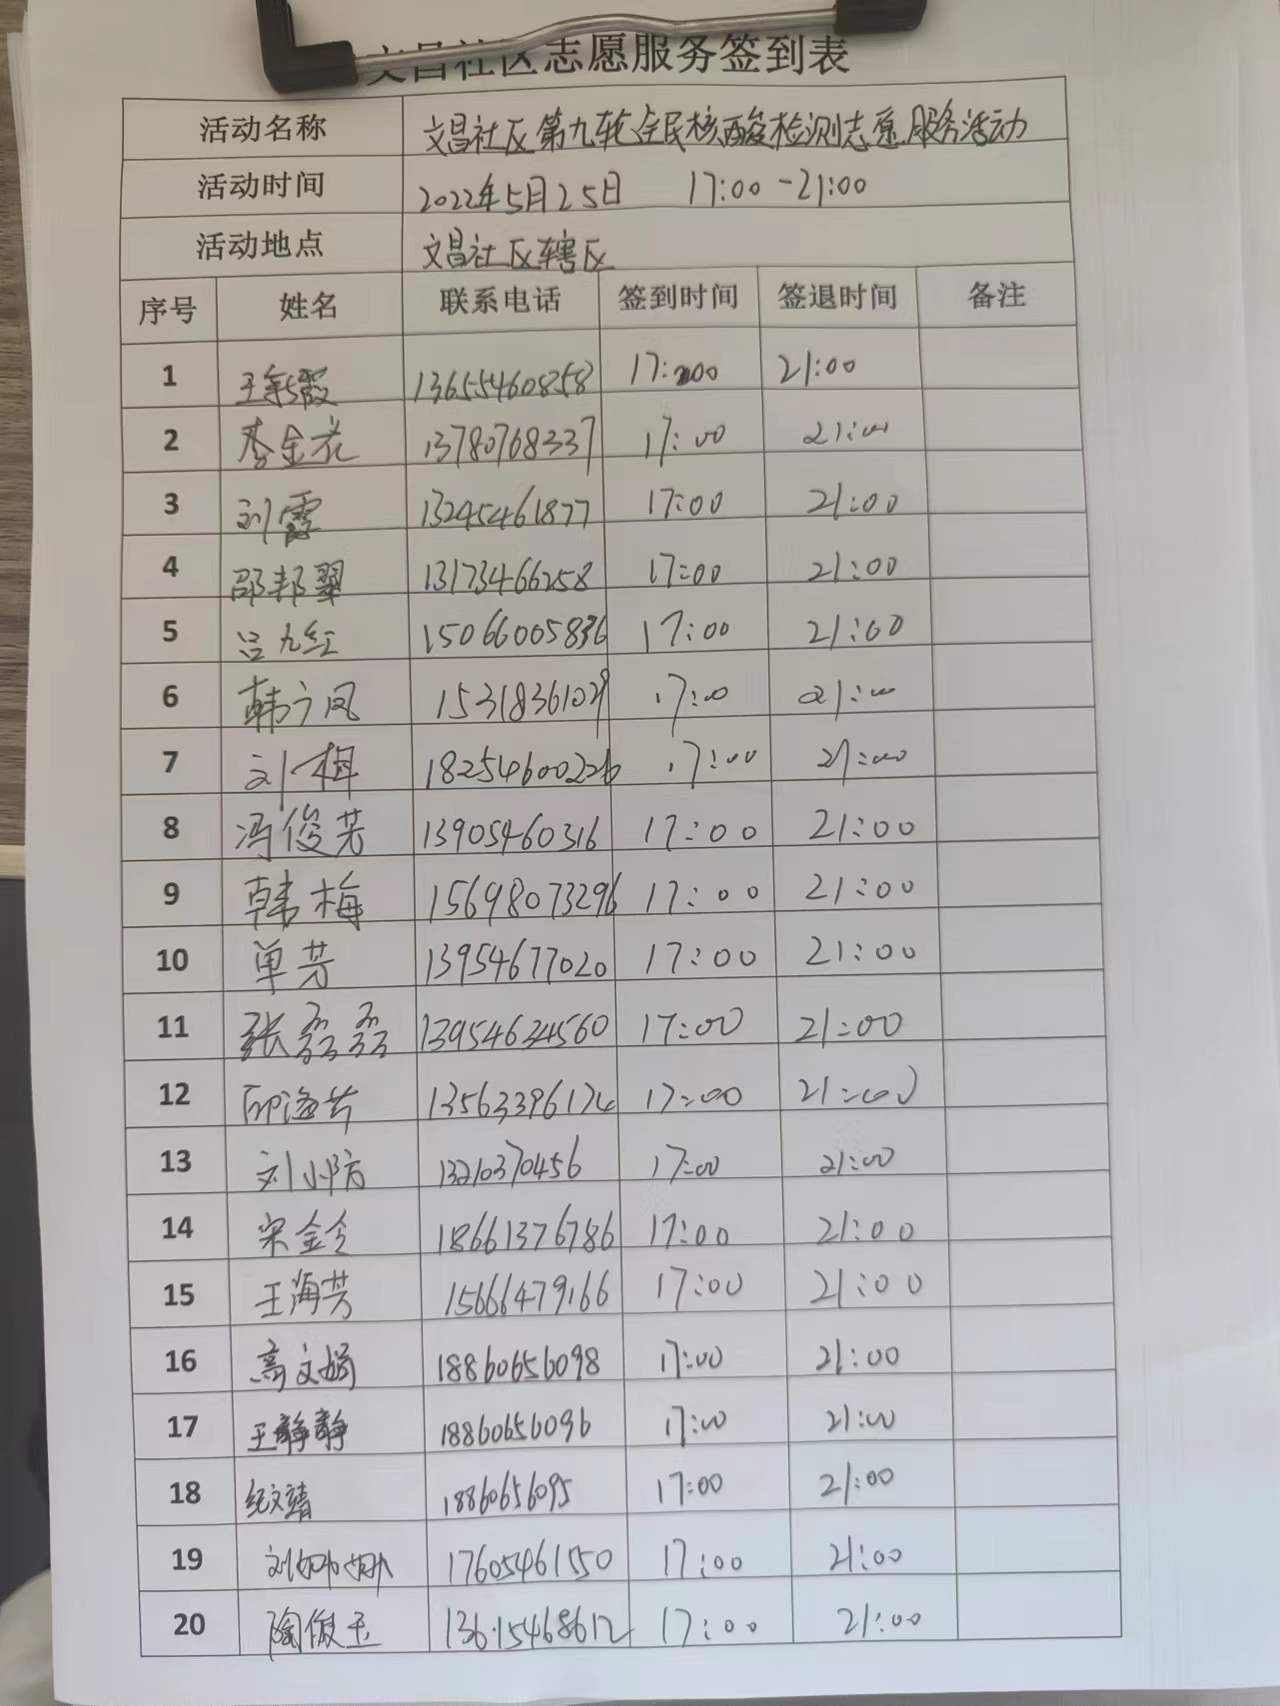 文昌社区志愿服务签到表
活动名称 文昌社区第九轮全民核酸检测志愿服务活动
活动时间 2022年5月25日 17:00-21:00
活动地点 文昌社区辖区
序号 姓名 联系电话 签到时间 签退时间 备注
1 13655460858 17:00 21:00
2 李金花 13780768337 17:00 21:00
3 刘霞 13295461877 17:00 21:00
4 邵邦翠 13173466258 17:00 21:00
5 吕九红 15066005836 17:00 21:00
6 韩广凤 15318361029 17:00 21:00
7 刘梅 18254600226 17:00 21:00
8 冯俊芳 13905460316 17:00 21:00
9 韩梅 15698073296 17:00 21:00
10 单芳 13954677020 17:00 21:00
11 张磊磊 13954634560 17:00 21:00
12 13563396174 17:00 21:00
13 刘小防 13210370456 17:00 21:00
14 宋金令 18661376786 17:00 21:00
15 王海芳 15666479166 17:00 21:00
16 高文娟 18860656098 17:00 21:00
17 王静静 18860656096 17:00 21:00
18 纪文靖 18860656095 17:00 21:00
19 刘娜娜 17605461550 17:00 21:00
20 陶俊玉 13615468612 17:00 21:00